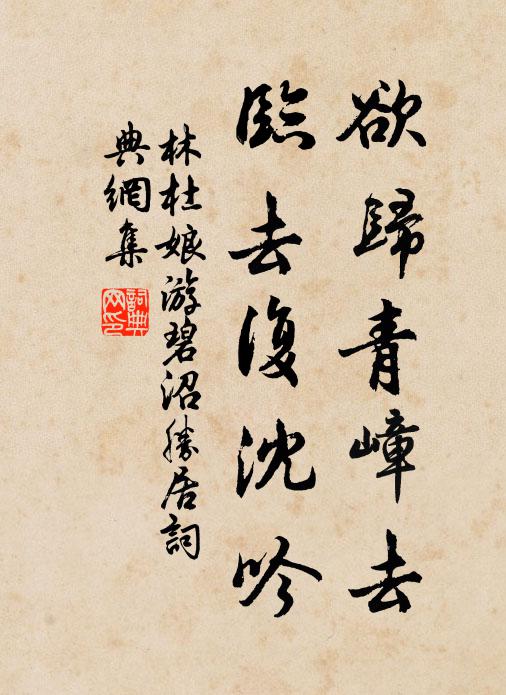 欲歸青嶂去
臨去復沈吟
林杜娘游碧沼勝居詞
典網集
詞典網印